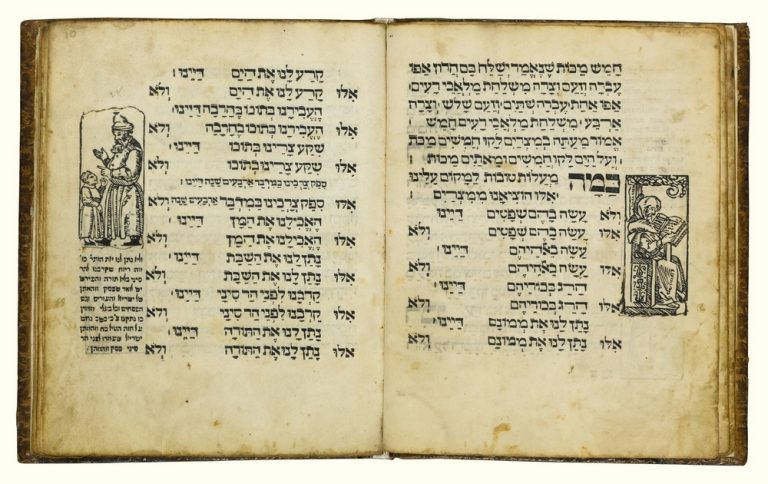 חמש מכות שנאמר ישלח בם חרון אפו
עברה וזעם וצרה משלחת מלאכי רעים:
אפו אחת עברה שתים וזעם שלש וצרה
ארבע משלחת מלאכי רעים חמש
אמור מעתה במצרים לקו חמשים מכות
ועל הים לקו חמשים ומאתים מכות:
כמה מעלות טובות למקום עלינו
אלו הוציאנו ממצרים
ולא עשה בהם שפטים דיינו:
אלו עשה בהם שפטים ולא
עשה באלהיהם דיינו:
אלו עשה באלהיהם ולא
הרג בכוריהם דיינו:
אלו הרג בכוריהם ולא
נתן לנו את ממונם דיינו:
אלו נתן לנו את ממונם ולא
10
קרע לנו את הים דיינו:
אלו קרע לנו את הים ולא
העבירנו בתוכו בחרבה דיינו:
אלו העבירנו בתוכו בחרבה ולא
שקע צרינו בתוכו דיינו:
אלו שקע צרינו בתוכו ולא
ספק צרכינו במדבר ארבעים שנה דיינו:
אלו ספק צרכינו במדבר ארבעים שנה ולא
האכילנו את המן דיינו:
אלו האכילנו את המן ולא
נתן לנו את השבת דיינו:
אלו נתן לנו את השבת ולא
קרבנו לפני הר סיני דיינו:
אלו קרבנו לפני הר סיני ולא
נתן לנו את התורה דיינו:
אלו נתן לנו את התורה ולא